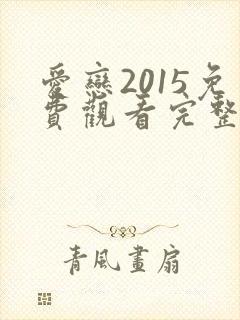 愛戀2015免
費觀看完整
青風畫扇